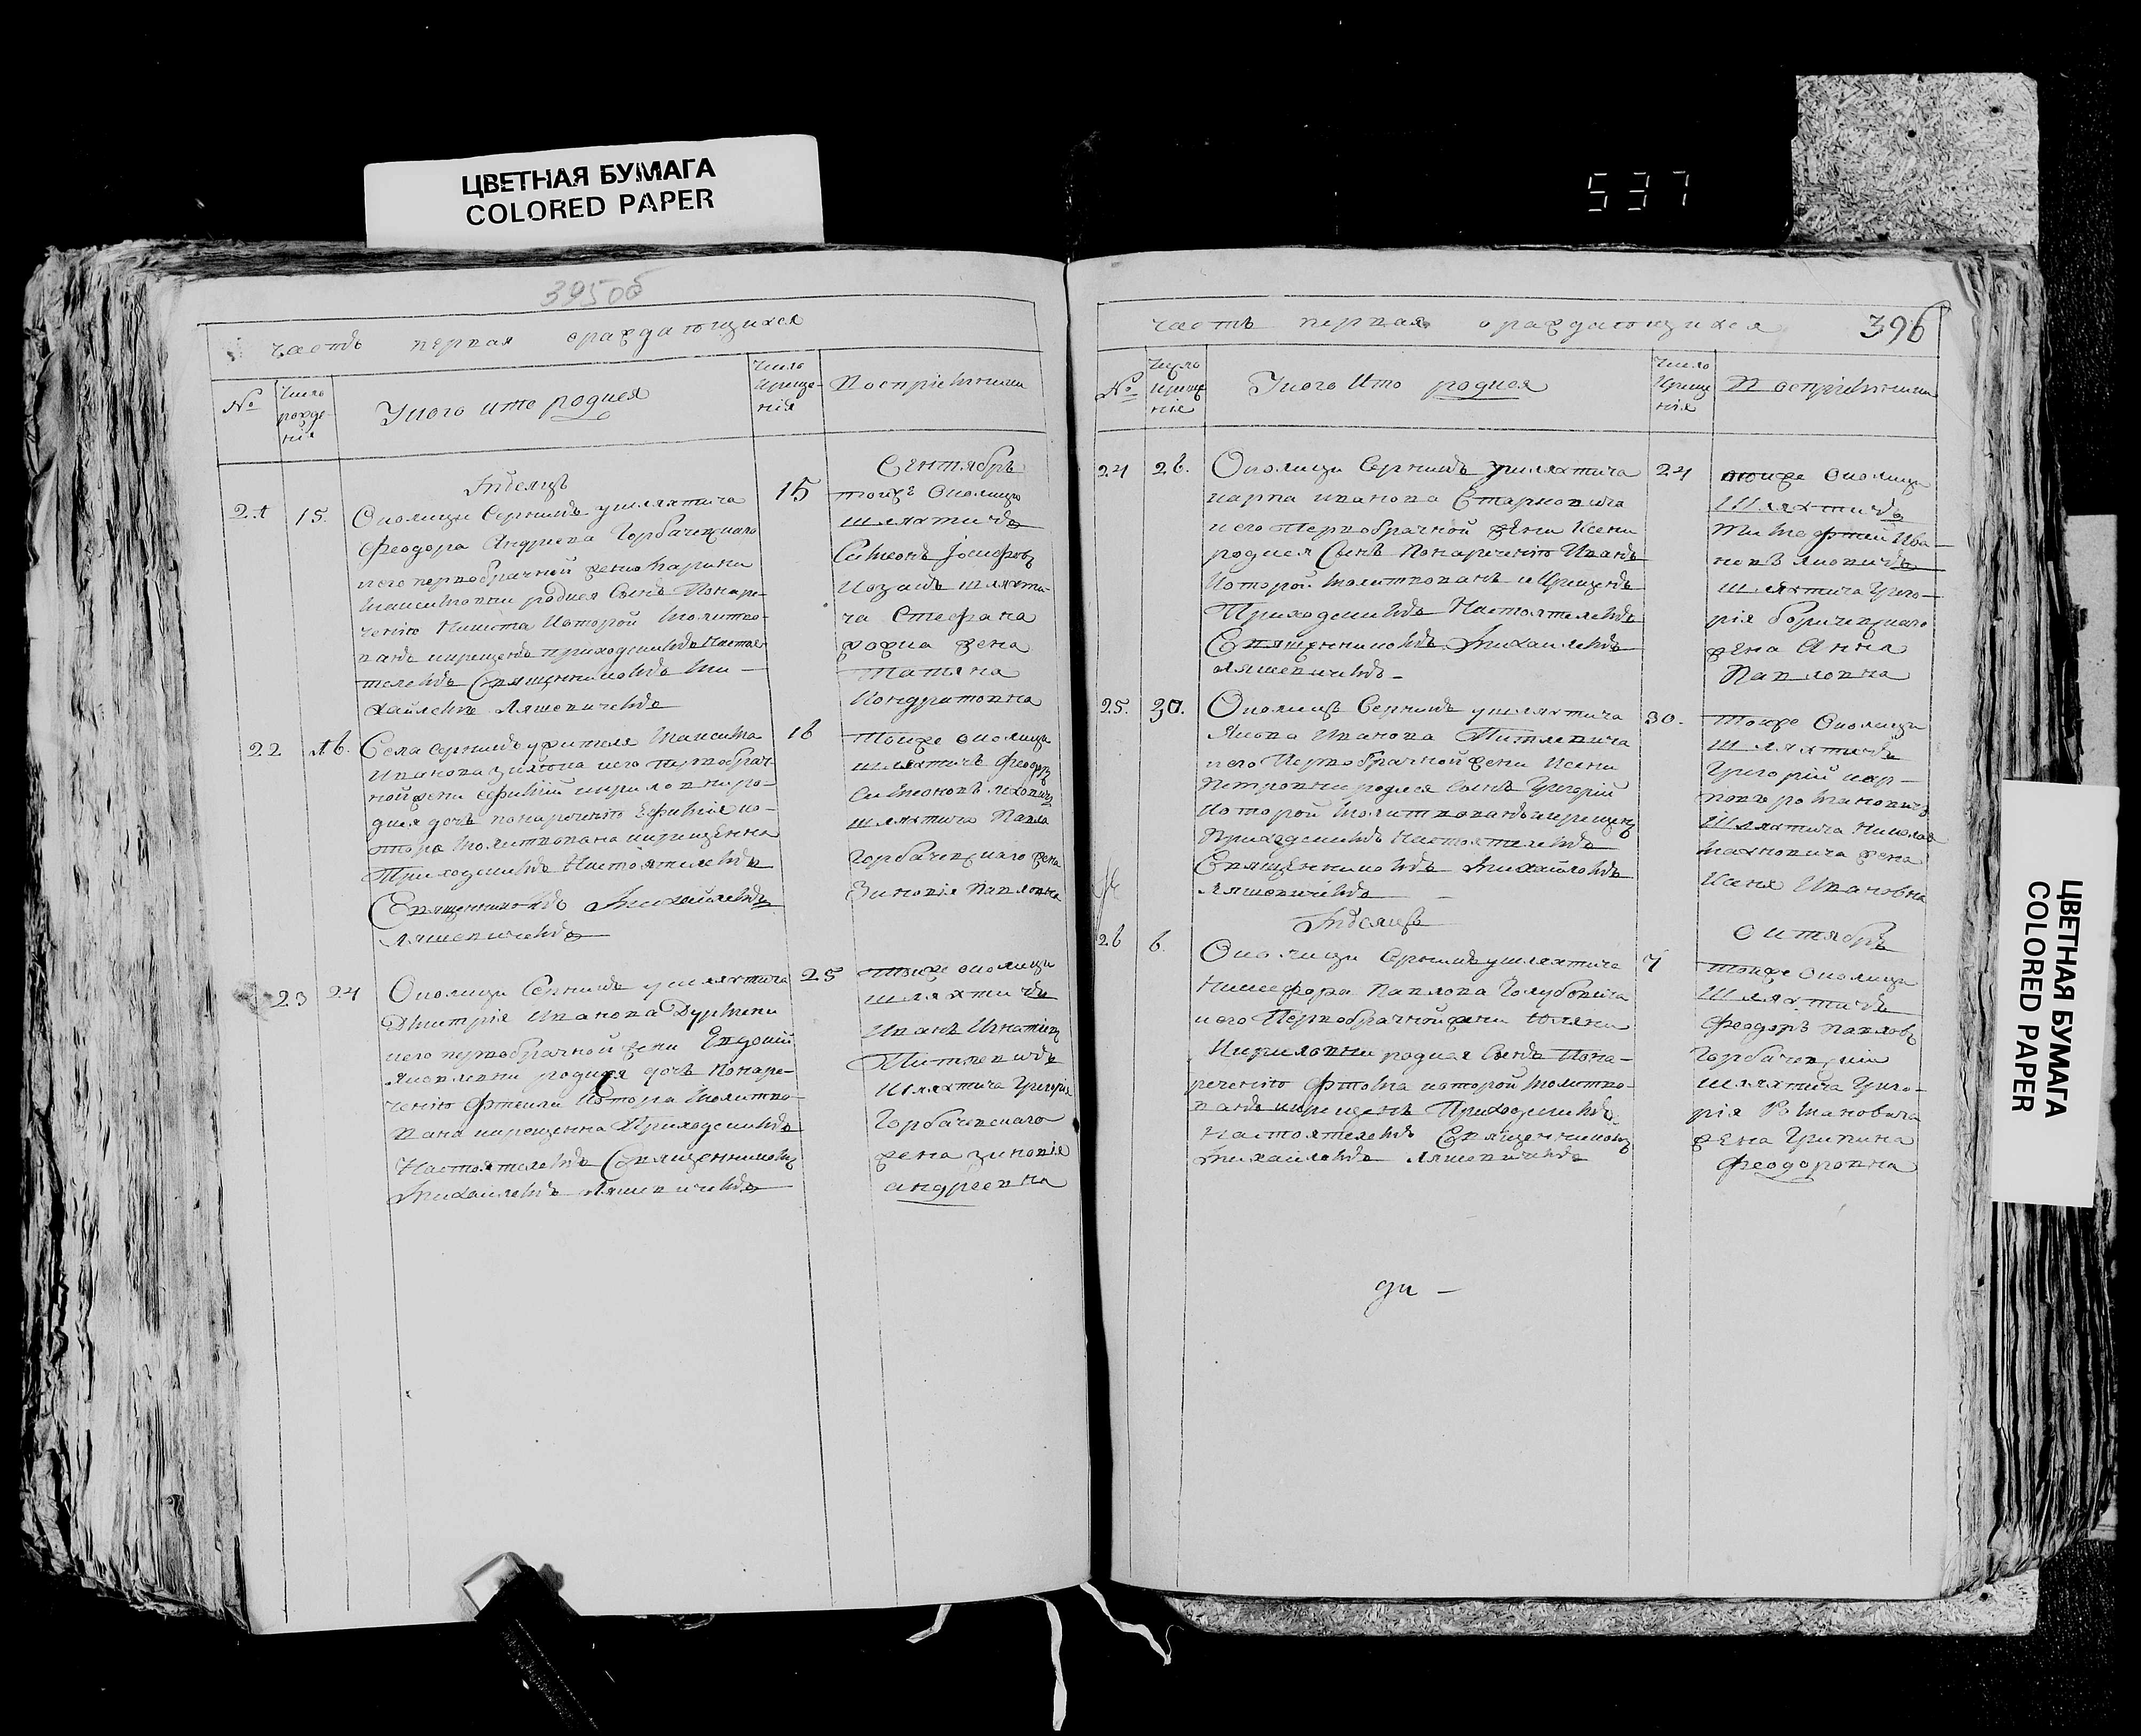 ЦВЕТНАЯ БУМАГА
COLORED PAPER
537
395об
часть первая ораждающихся
№
Число рожде-нія
У кого кто родися
Число креще-нія
Воспріемники
Мѣсяцъ
Сентябрь
21
15.
Околицы Серникъ у шляхтича
Феодора Андреева Горбачевскаго
и его первобрачной жены Марины
Максимовны родися сынъ Понаре-
ченію Никита которой молитво-
ванъ и крещенъ приходскимъ Настоя-
телемъ Священникомъ Ми-
хайлемъ Ляшевичемъ
15
тоиже Околицы
шляхтичъ
Симеонъ Іосифовъ
Козакъ шляхти-
ча Стефана
жена
Татяна
Кондратовна
22
16.
Села Серникъ у жителя Максима
Иванова и его первобрач-
ной жени Ефиміи Кириловни ро-
дися дочь понареченію Ефимія ко-
тора молитвована и крещенна
Приходскимъ Настоятелемъ
Священникомъ Михайлемъ
Ляшевичемъ
16
Тоиже околицы
шляхтичъ Феодоръ
Симеоновъ
шляхтича Павла
Горбачевскаго жена
Зиновія Павловна
23
24
Околицы Серникъ у шляхтича
Дмитрія Иванова Дурмени
и его первобрачной жени Евдокіи
Яковлевни родися дочь Понаре-
ченію Фтекли котора молитво-
вана и крещенна Приходскимъ
Настоятелемъ Священникомъ
Михаилемъ Ляшевичемъ
25
Тоиже околицы
шляхтичъ
Иванъ Игнатіевъ
Титлевичъ
Шляхтича Григорія
Горбачевскаго
жена зиновія
андреевна
часть первая ораждающихся
396
№
Число креще нія
У кого кто родися
Число Креще нія
Воспріемники
24
26.
Околицы Серникъ у шляхтича
карпа иванова Старковича
и его Первобрачной жени Ксени
родися Синъ Понареченію Иванъ
которой молитвованъ и крещенъ
Приходскимъ Настоятелемъ
Священникомъ Михаилемъ
Ляшевичемъ -
24
тоиже Околицы
Шляхтичъ
Тимофтей Ива-
новъ
шляхтича Григо-
рія Боричевскаго
жена Анна
Павловна
25.
30.
Околицъ Серникъ у шляхтича
Якова Иванова Титлевича
и его Первобрачной жени Ксени
Петровни родися Синъ Григорій
которой молитвованъ и крещенъ
Приходскимъ Настоятелемъ
Священникомъ Михайломъ
Ляшевичемъ -
30.
Тоиже Околицы
Шляхтичъ
Григорій кар-
повъ романовичъ
Шляхтича Николая
махновича жена
Ксеня Ивановна
Мѣсяцъ
Октябрь
26
6.
Околици Серникъ у шляхтича
Никифора Павлова Голубовича
и его Первобрачной жени Юляни
Кириловни родися Синъ Пона-
реченію Фтома которой молитво-
ванъ и крещенъ Приходскимъ
Настоятелемъ Священникомъ
Михаиломъ Ляшевичемъ
7
тоиже Околицы
Шляхтичъ
Феодоръ Павловъ
Горбачевскій
шляхтича Григо-
рія Романовича
жена Грипина
Феодоровна
ди -
ЦВЕТНАЯ БУМАГА
COLORED PAPER